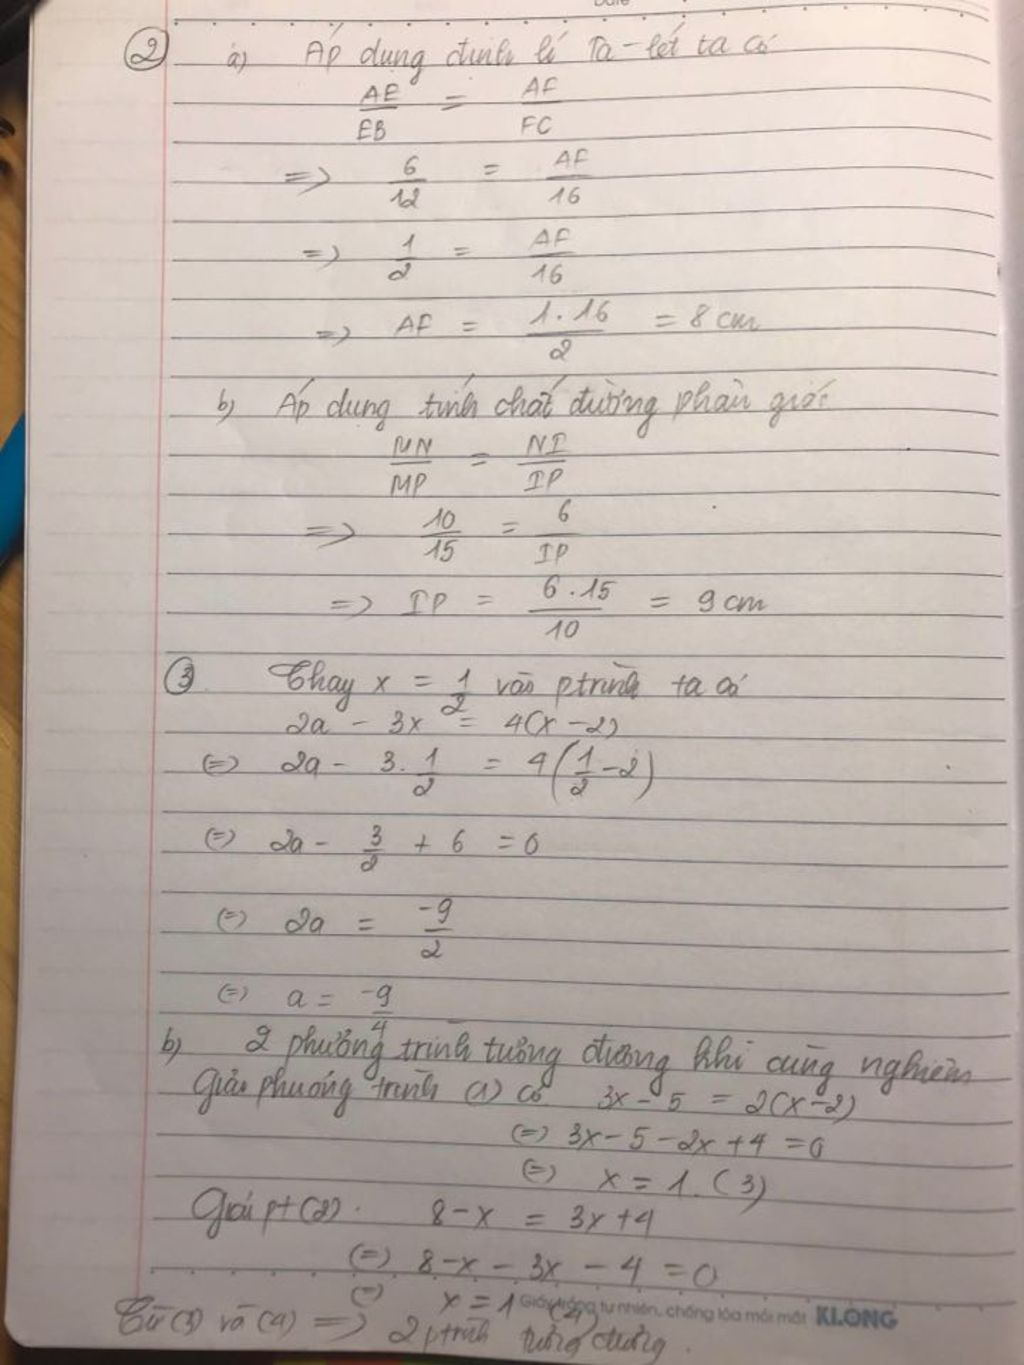 ② a) Áp dụng định lí Ta-lét ta có
AE/EB = AF/FC
=> 6/12 = AF/16
=> 1/2 = AF/16
=> AF = 1.16/2 = 8 cm
b) Áp dụng tính chất đường phân giác
MN/MP = NI/IP
=> 10/15 = 6/IP
=> IP = 6.15/10 = 9 cm
③ Thay x = 1/2 vào ptrình ta có
2a - 3x = 4(x-2)
(=) 2a - 3.1/2 = 4(1/2-2)
(=) 2a - 3/2 + 6 = 0
(=) 2a = -9/2
(=) a = -9/4
b) 2 phương trình tương đương khi cùng nghiệm
Giải phương trình (1) có 3x-5 = 2(x-2)
(=) 3x-5-2x+4 = 0
(=) x = 1. (3)
Giải pt (2). 8-x = 3x+4
(=) 8-x-3x-4 = 0
(=) x = 1 (4)
Giấy trắng tự nhiên, chống lóa mỏi mắt KLONG
Từ (3) và (4) => 2 ptrình tương đương.